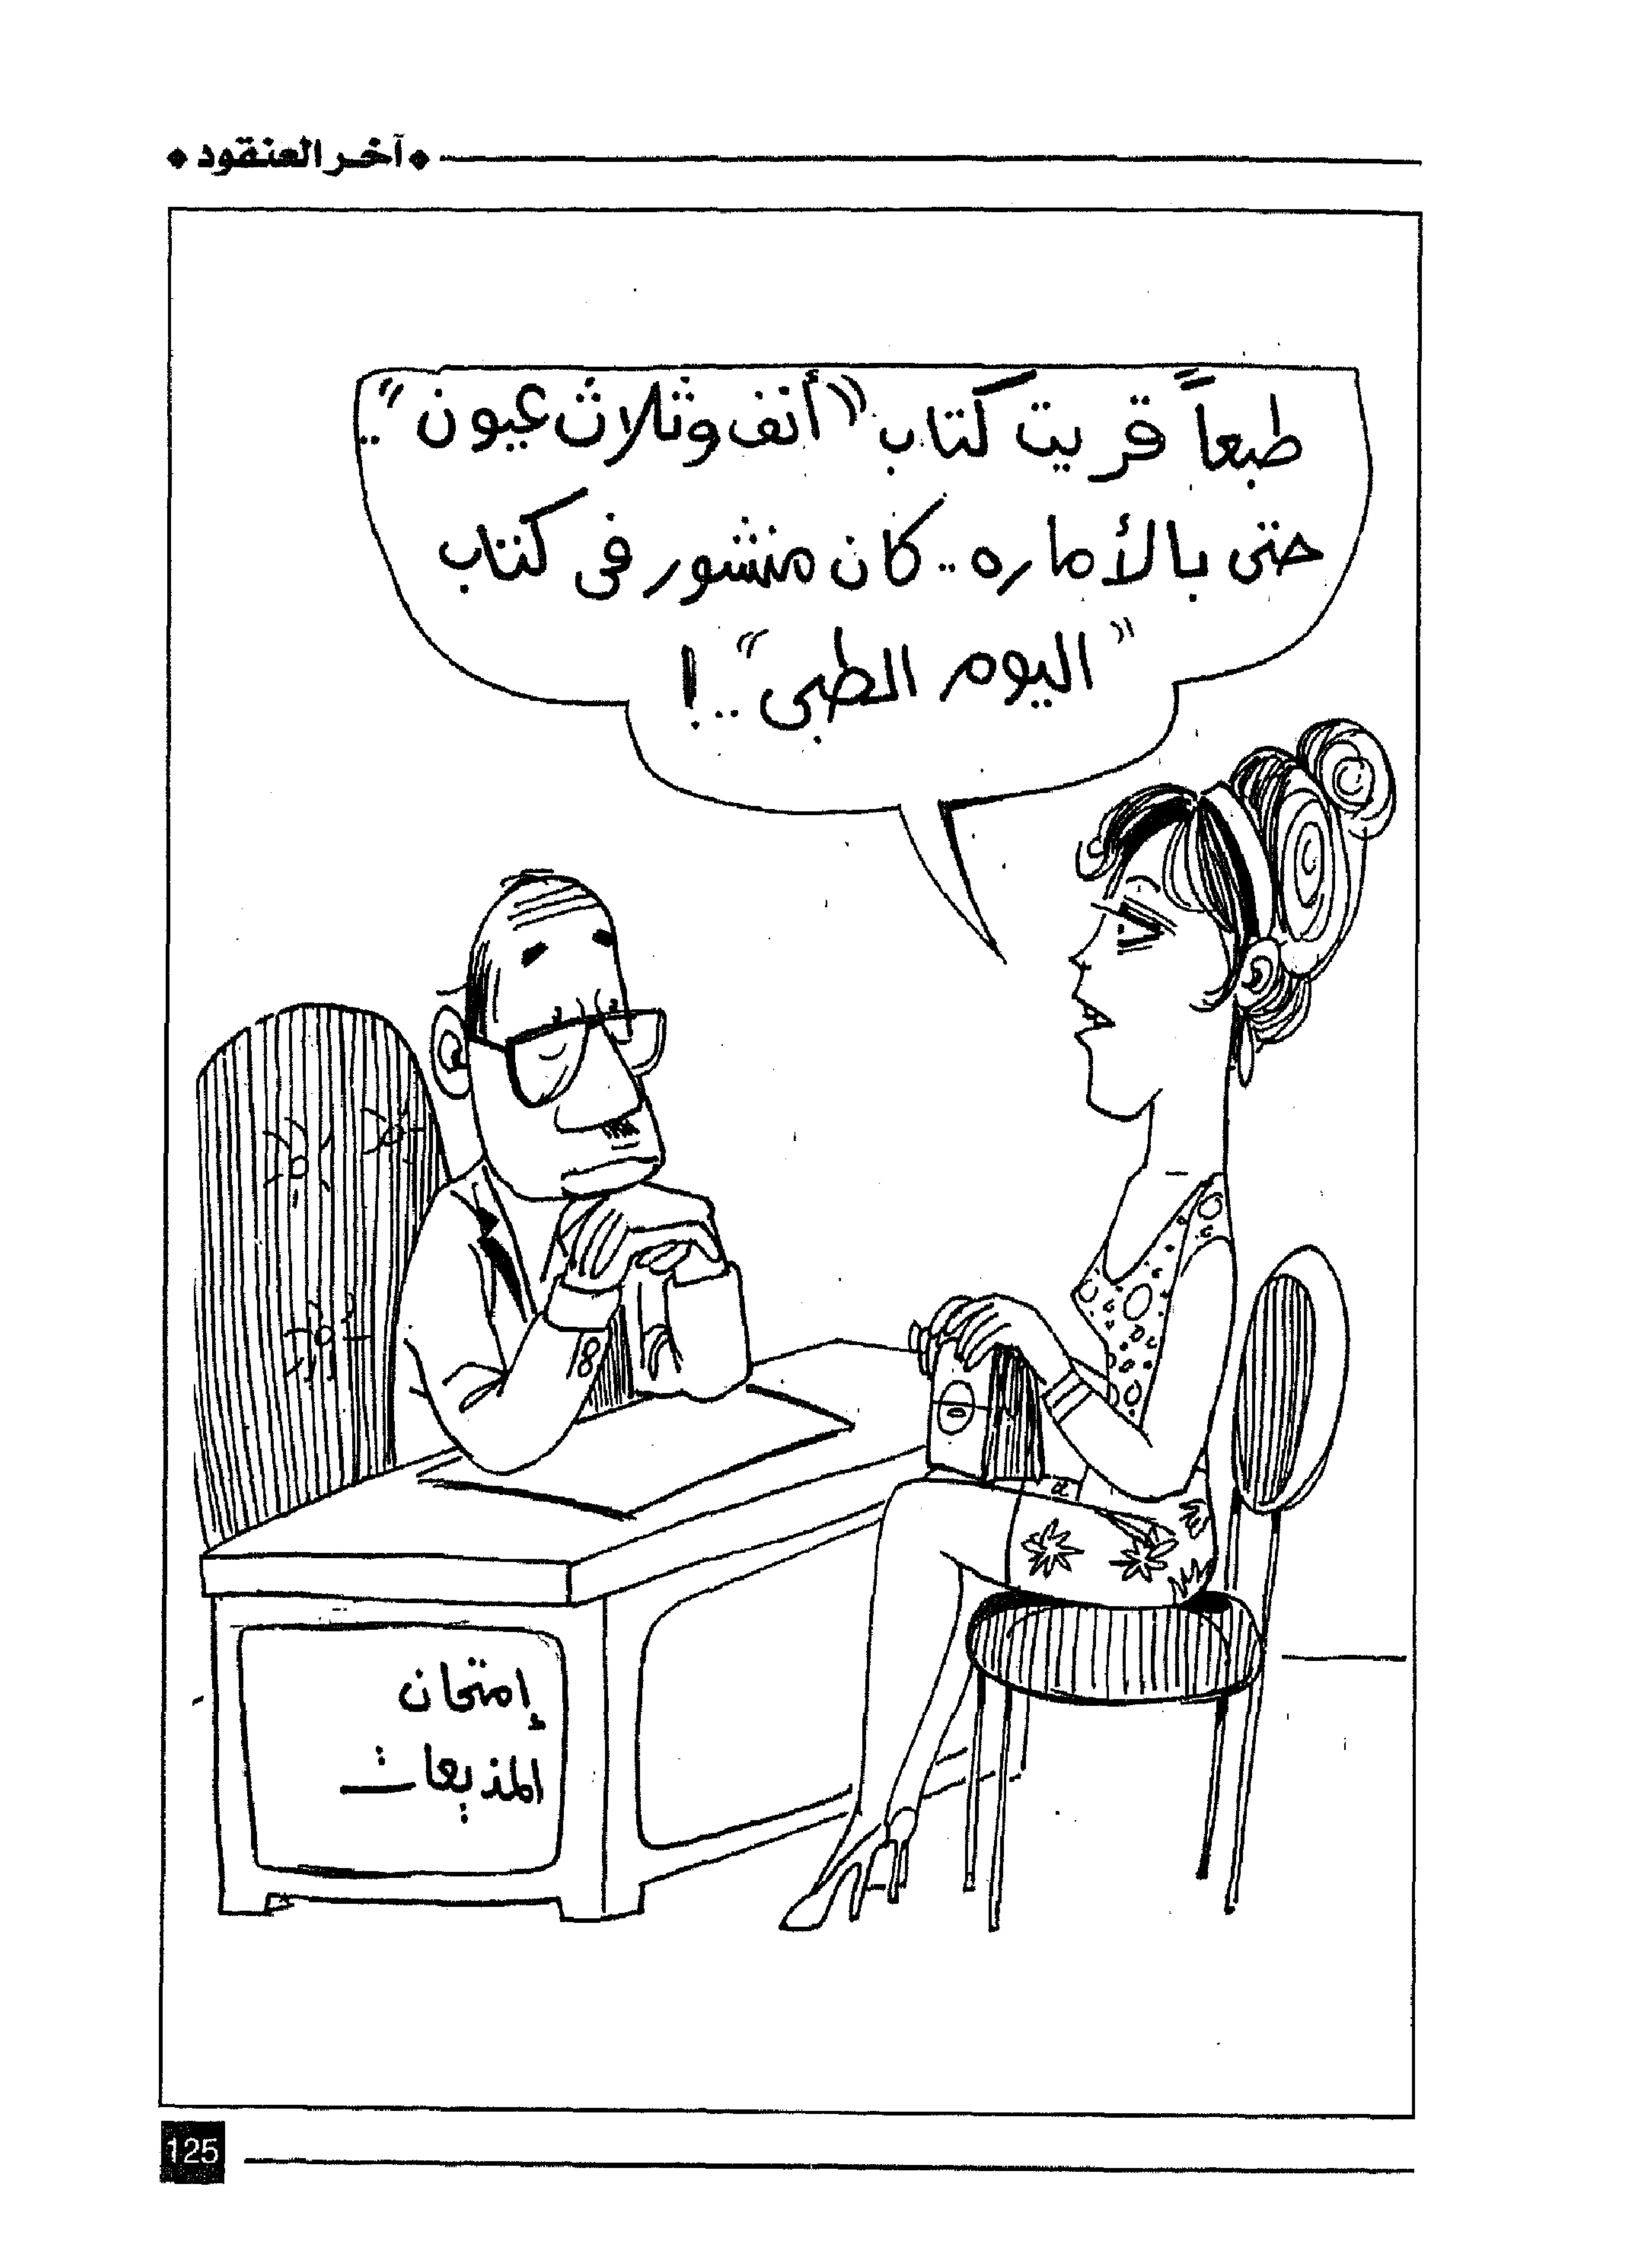 آخر العنقود
طبعاً قريت كتاب "أنف وثلاث عيون"..
حتى بالأماره.. كان منشور فى كتاب
"اليوم الطبى"..!
إمتحان
المذيعات
125